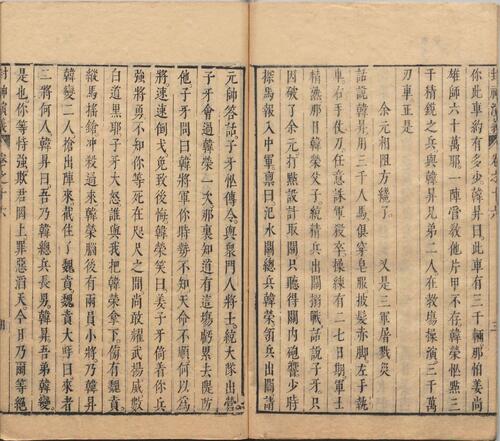 你此車約有多少韓昇曰此車有三千輛那怕姜尚
雄師六十萬耶一陣管教他片甲不存韓榮忙點三
千精銳之兵與韓昇兄弟二人在教場操演三千萬
刃車正是
余元相阻方纔了 又是三軍屠戮災
話說韓昇用三千人馬俱穿皂服披髮赤脚左手執
車右手仗刀任意誅軍殺卒操練有二七日期軍士
精熟那日韓榮父子統精兵出關搦戰話說子牙
因破了余元打點設計取關只聽得關內砲響少時
探馬報入中軍稟曰汜水關總兵韓榮領兵出關請
元帥答話子牙忙傳令與衆門人將士統大隊出營
子牙會過韓榮一次那裏知道有這場虧累去隄防
他子牙問曰韓將軍你時勢不知天命不順何以爲
將速速倒戈免致後悔韓榮笑曰姜子牙倚着你兵
強將勇不知你等死在咫尺之間尚敢耀武揚威數
白道黑耶子牙大怒誰與我把韓榮拿下傍有魏賁
縱馬搖鎗冲殺過來韓榮腦後有兩員小將乃韓昇
韓變二人搶出陣來截住了魏賁魏賁大呼曰來者
二將何人韓昇曰吾乃韓總兵長男韓昇吾弟韓變
是也你等恃強欺君罔上罪惡滔天今日乃爾等絕
封神演義
卷之十六